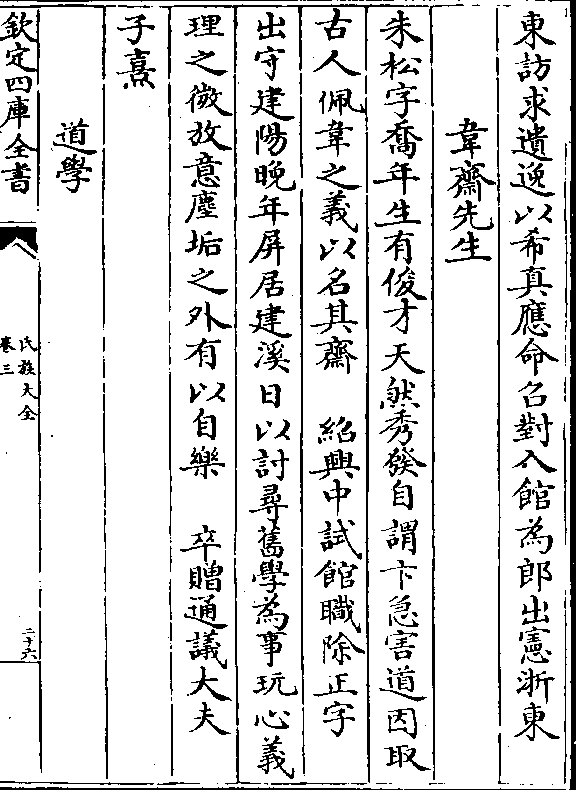 東訪求遺逸以希真應命召對入館為郎出憲浙東
韋齋先生
朱松字喬年生有俊才天然秀發自謂卞急害道因取
古人佩韋之義以名其齋　紹興中試館職除正字
出守建陽晚年屏居建溪日以討尋舊學為事玩心義
理之微放意塵垢之外有以自樂　卒贈通議大夫
子熹
道學
欽定四庫全書
氏族大全
卷三
二十六